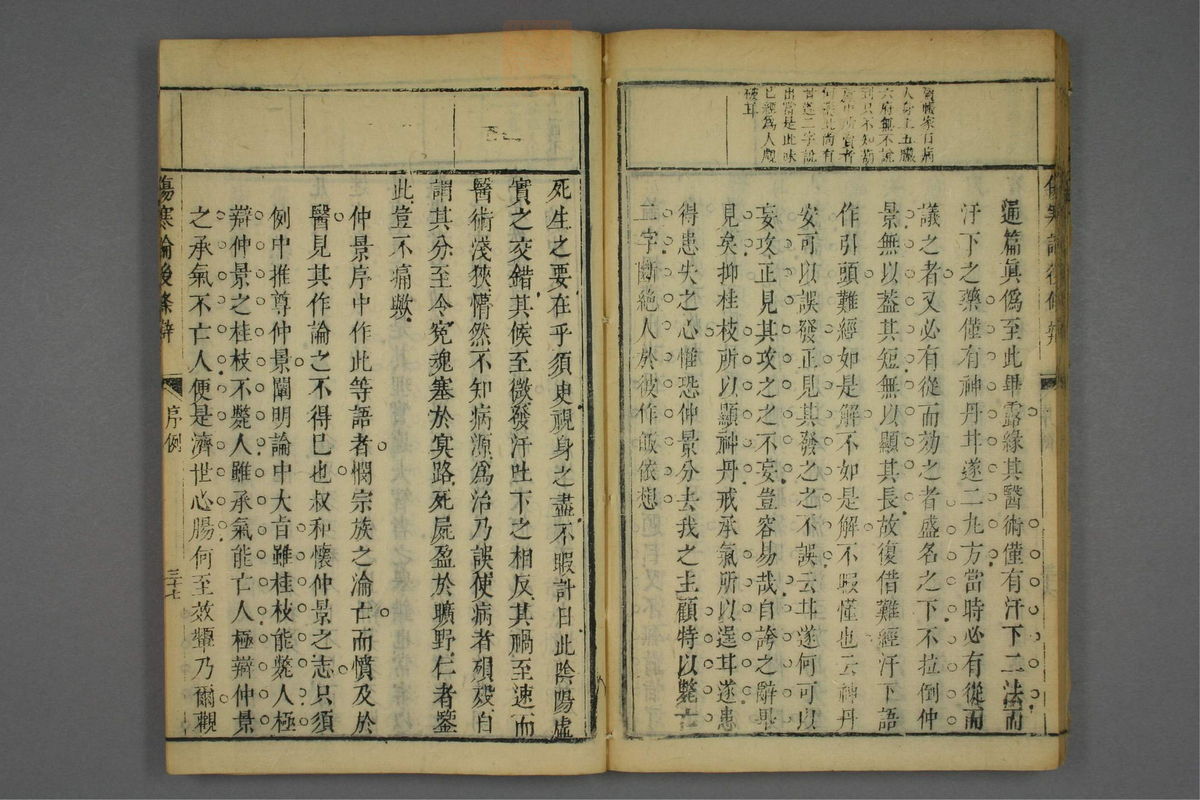 人身上五臟
六府無不說
出當是此味
已經為人㕔
破耳
通篇眞僞至此畢露緣其醫術僅有汗下二法而
汗下之藥僅有神丹甘遂二九方當時必有從而
議之者又必有從而効之者盛名之下不拉倒仲
景無以蓋其短無以顯其長故復借難經汗下語
作引頭難經如是解不如是解不暇懂也云神丹
安可以誤發正見其發之之不誤云甘遂何可以
妄攻正見其攻之之不妄豈容易哉自誇之辭畢
見矣抑桂枝所以顯神丹戒承氣所以逞甘遂患
得患失之心惟恐仲景分去我之主顧特以斃亡
字斷絕人於彼作皈依想
死生之要在乎須臾視身之盡不暇計日此陰陽虛
實之交錯其候至微發汗吐下之相反其禍至速而
醫術淺狹懵然不知病源為治乃誤使病者殞歿自
謂其分至今寃魂塞於冥路死屍盈於曠野仁者鑒
此豈不痛歟
仲景序中作此等語者憫宗族之淪亡而憤及於
醫見其作論之不得已也叔和懷仲景之志只須
例中推尊仲景闡明論中大旨雖桂枝能斃人極
辯仲景之桂枝不斃人雖承氣能亡人極辯仲景
之承氣不亡人便是濟世心腸何至效顰乃爾觀
傷寒論後條辯
序例
三十七